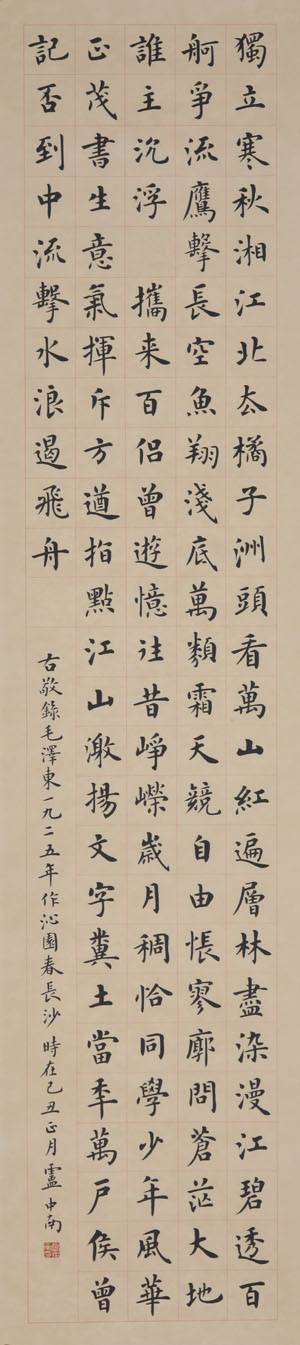 獨立寒秋湘江北去橘子洲頭看萬山紅遍層林盡染漫江碧透百
舸爭流鷹擊長空魚翔淺底萬類霜天競自由悵寥廓問蒼茫大地
誰主沉浮 攜来百侣曾遊憶往昔崢嶸歲月稠恰同學少年風華
正茂書生意氣揮斥方遒指點江山激揚文字糞土當年萬户侯曾
記否到中流擊水浪遏飛舟
右敬錄毛澤東一九二五年作沁園春長沙 時在己丑正月 盧中南